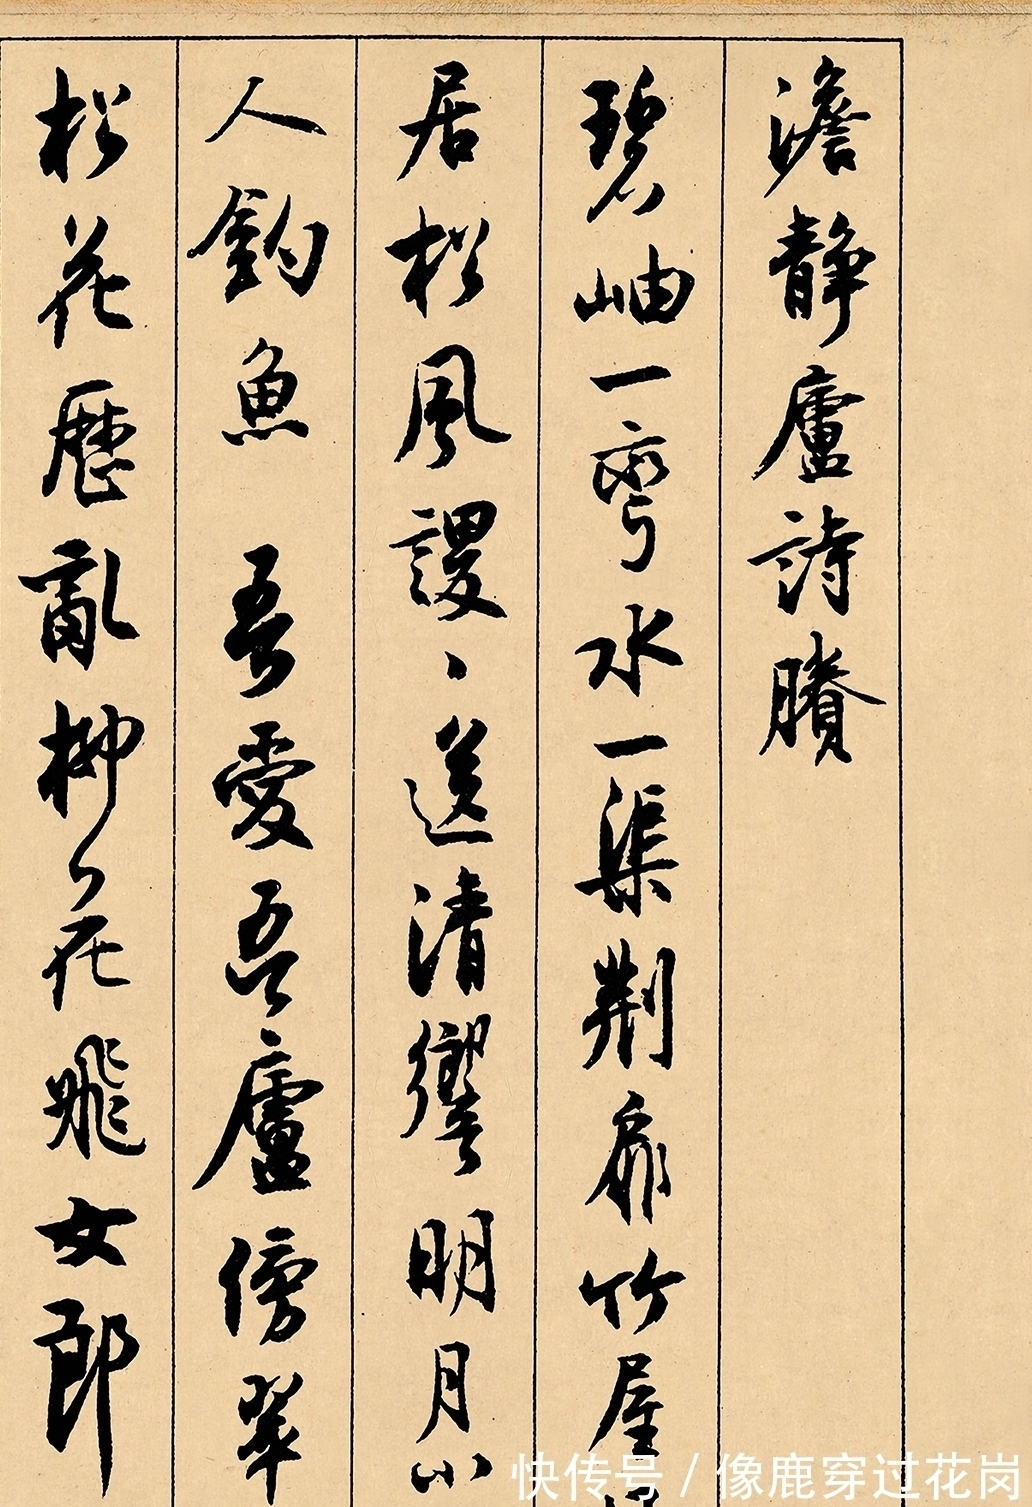 澹静廬詩賸
碧岫一弯水一渠荆扉竹屋
居松風謖、送清響明月小
人釣魚 吾愛吾廬傍翠
松花歷亂柳花飛女郎
快传号 / 像鹿穿过花岗